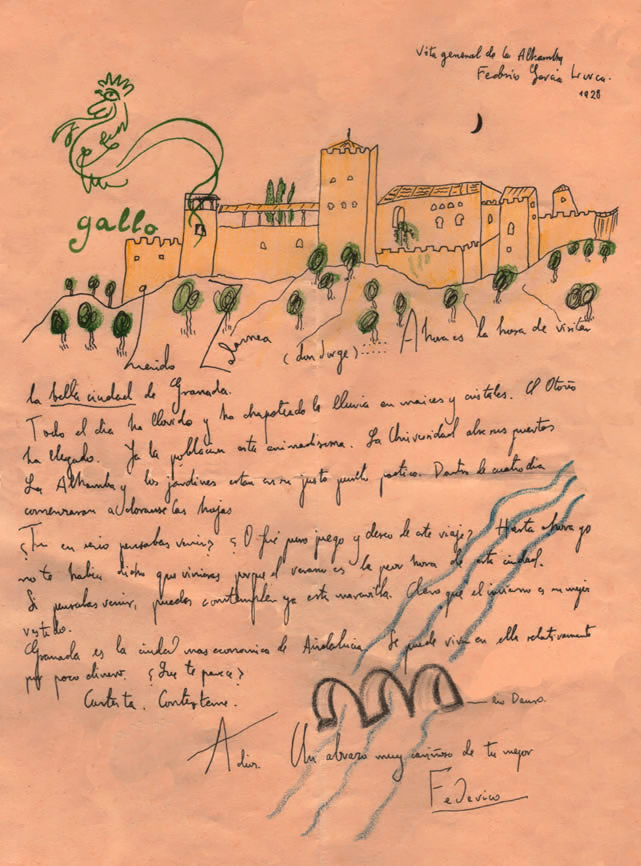 Vista general de la Alhambra
Federico García Lorca.
1928
gallo
Querido Zalamea (don Jorge)..... Ahora es la hora de visitar
la bella ciudad de Granada.
Todo el dia ha llovido y ha chapoteado la lluvia en maices y cristales. El Otoño
ha llegado. Ya la poblacion esta animadisima. La Universidad abre sus puertas
La Alhambra y los jardines estan en su justo punto poetico. Dentro de cuatro dias
comenzaran a dorarse las hojas
¿Tu en serio pensabas venir? ¿O fué puro juego y deseo de este viaje? Hasta ahora yo
no te habia dicho que vinieras porque el verano es la peor hora de esta ciudad.
Si pensabas venir, puedes contemplar ya esta maravilla. Claro que el invierno es su mejor
vestido.
Granada es la ciudad mas economica de Andalucia. Se puede vivir en ella relativamente
por poco dinero. ¿Que te parece?
Contesta. Contestame.
rio Dauro.
Adios. Un abrazo muy cariñoso de tu mejor
Federico